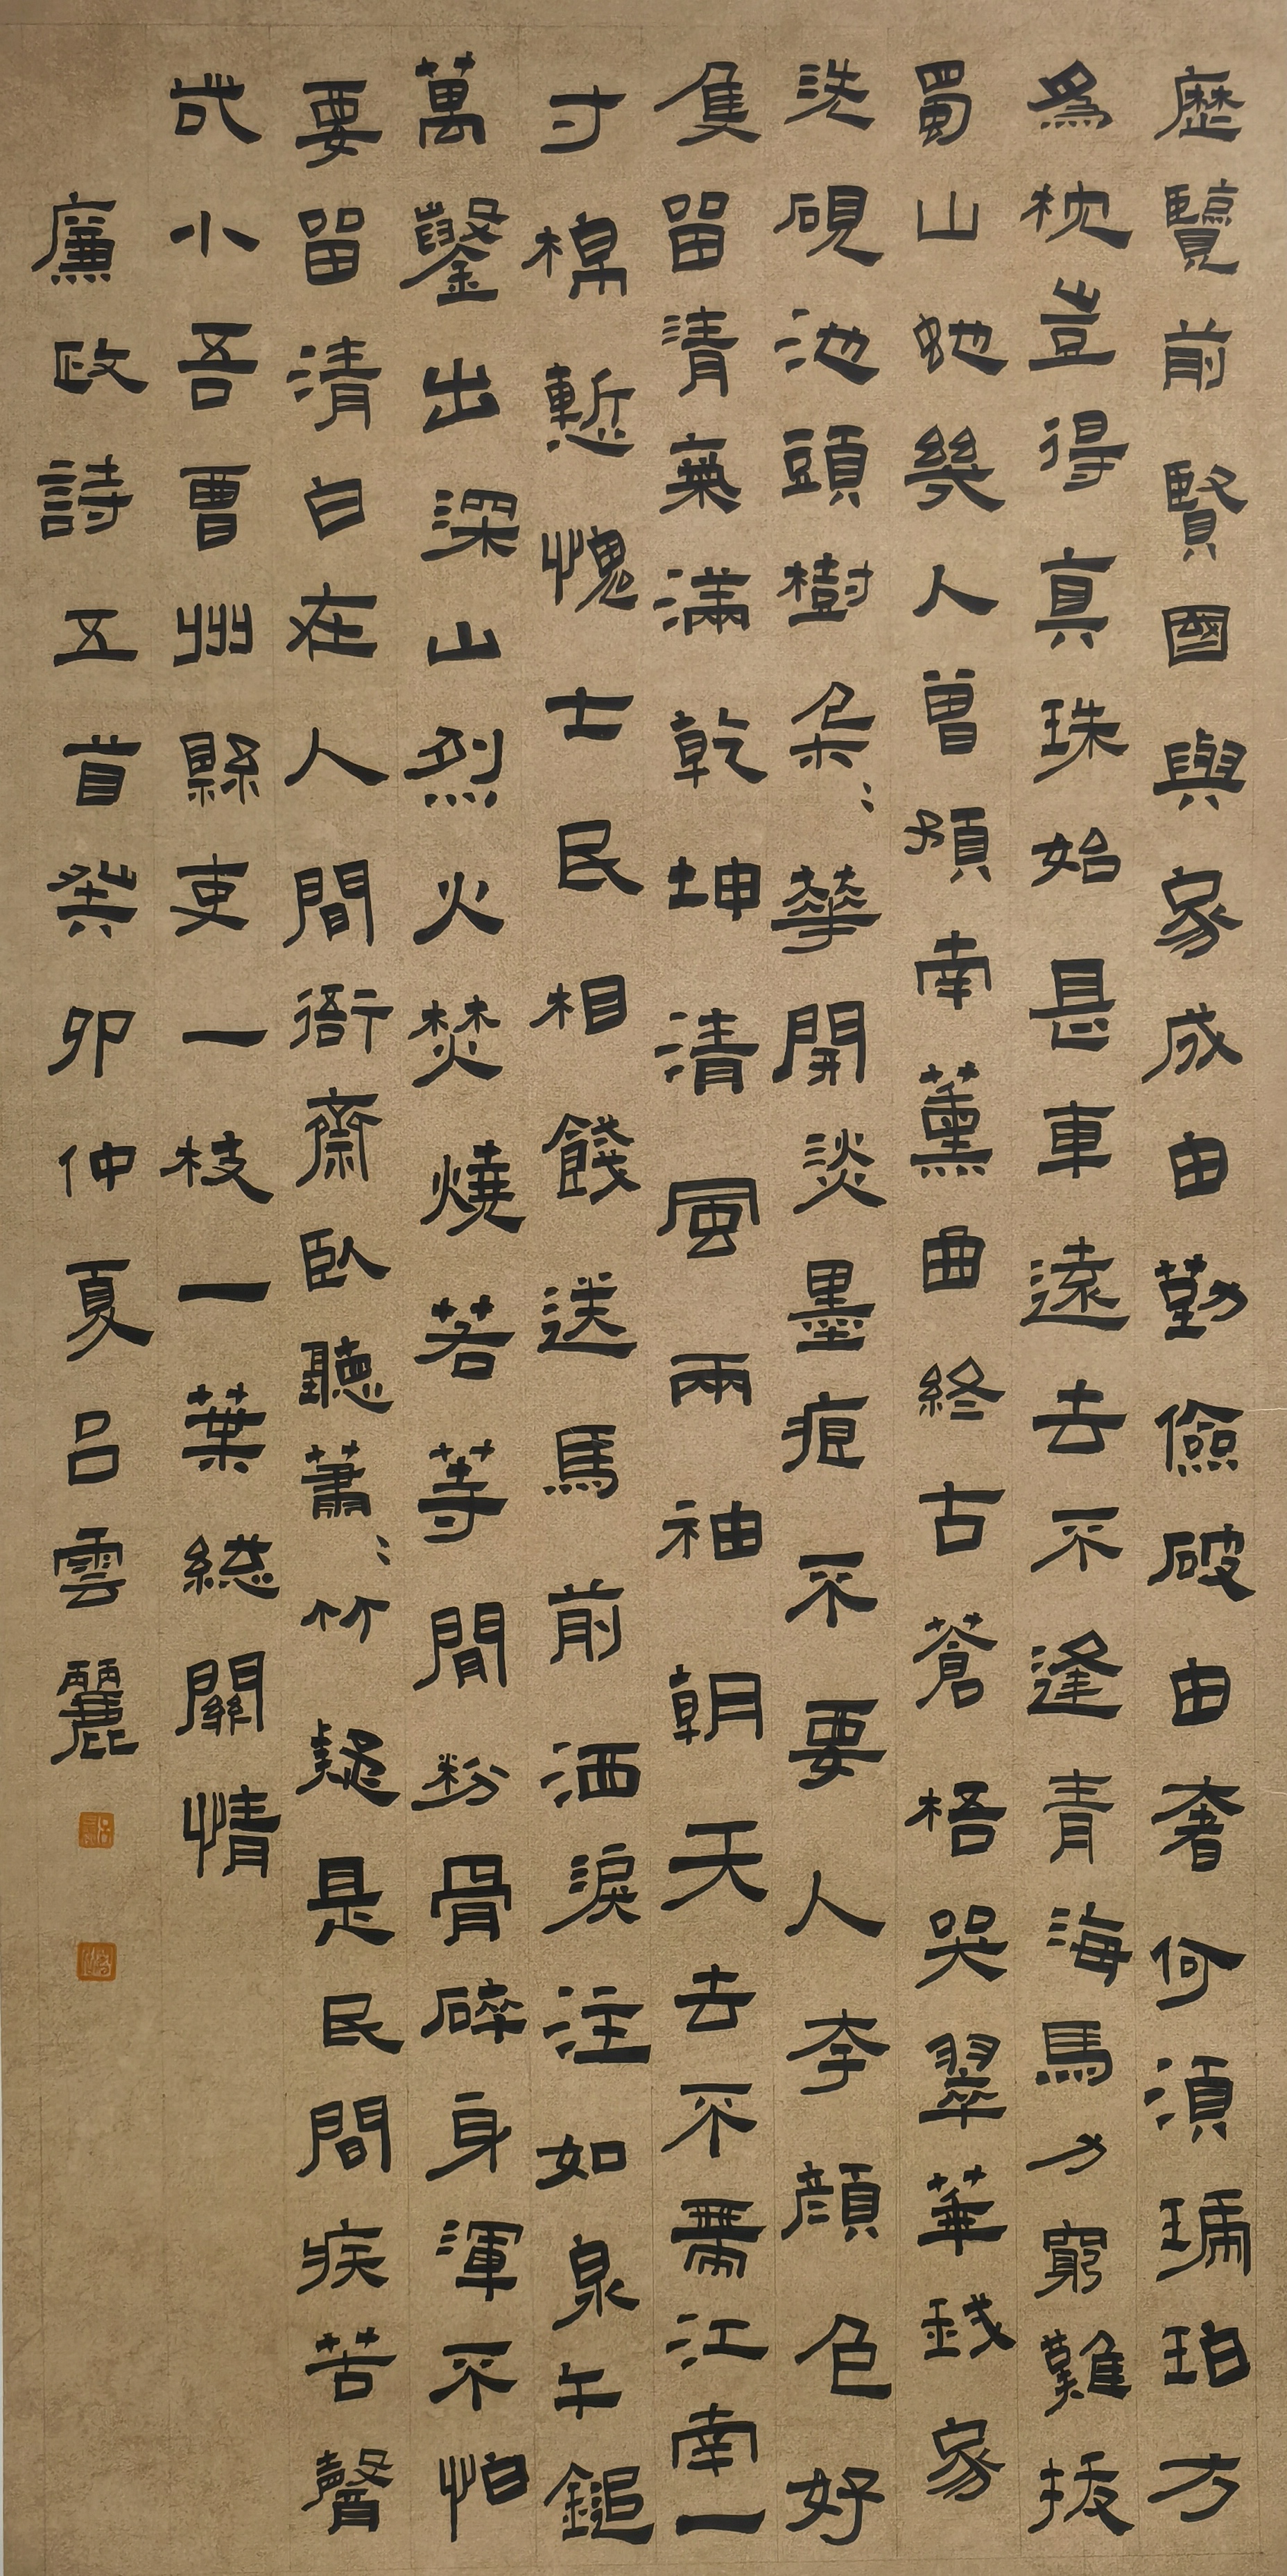 歷覽前賢國與家成由勤儉破由奢何須琥珀方
為枕豈得真珠始是車遠去不逢青海馬力窮難拔
蜀山蛇幾人曾預南薰曲終古蒼梧哭翠華錢家
洗硯池頭樹朵朵華開淡墨痕不要人夸顏色好
隻留清氣滿乾坤清風兩袖朝天去不帶江南一
寸棉慙愧士民相餞送馬前洒淚注如泉千鎚
萬鑿出深山烈火焚燒若等閒粉骨碎身渾不怕
要留清白在人間衙齋臥聽蕭蕭竹疑是民間疾苦聲
些小吾曹州縣吏一枝一葉總關情
廉政詩五首癸卯仲夏呂雲麗